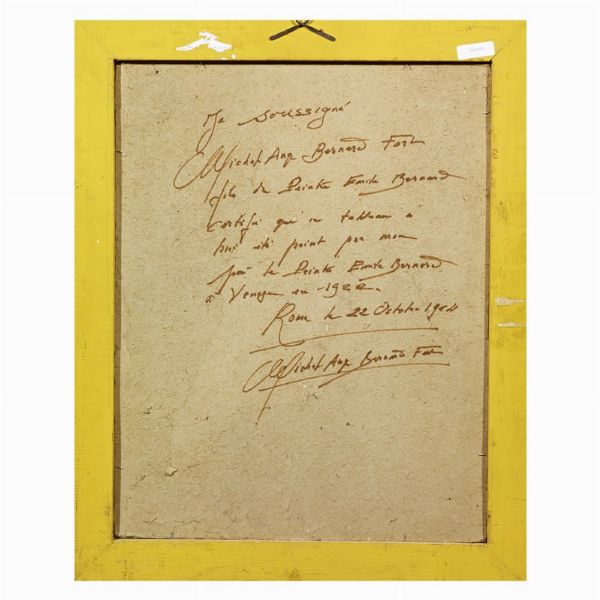 Je soussigné
Michel Ange Bernard Fort
fils de Peintre Emile Bernard
certifie que ce tableau a
bien été peint par mon
père le Peintre Emile Bernard
a Venise en 1922.
Rome le 22 Octobre 1964
Michel Ange Bernard Fort